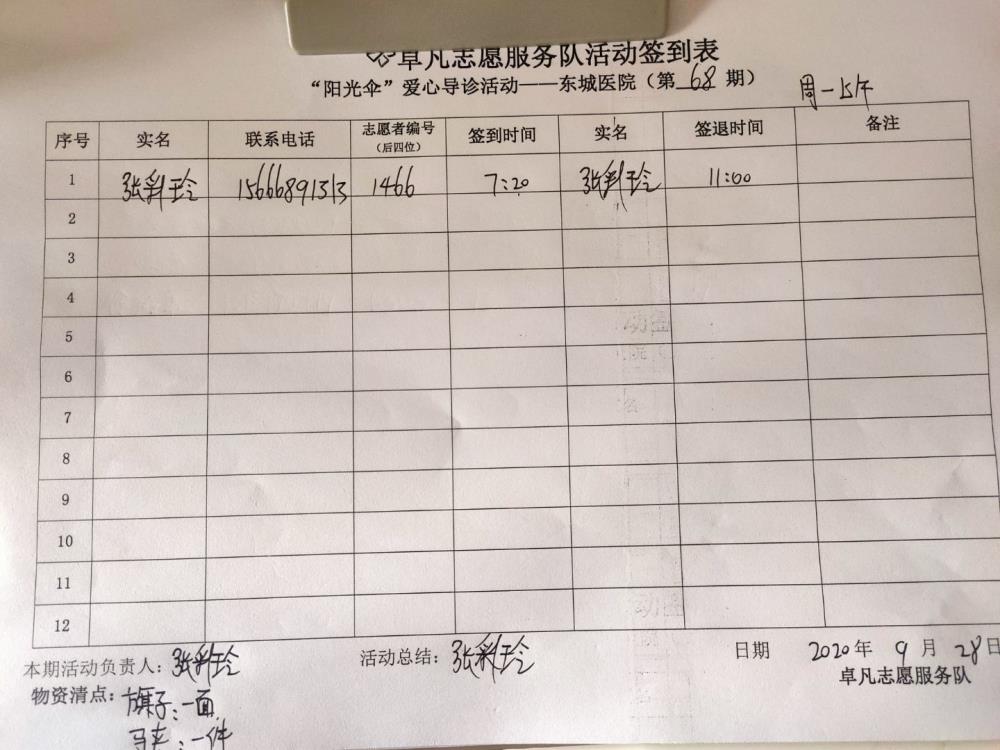 卓凡志愿服务队活动签到表
“阳光伞”爱心导诊活动——东城医院（第 68 期）
周一上午
序号 实名 联系电话 志愿者编号（后四位） 签到时间 实名 签退时间 备注
1 张彩玲 15666891313 1466 7:20 张彩玲 11:00
2
3
4
5
6
7
8
9
10
11
12
本期活动负责人：张彩玲 活动总结：张彩玲 日期 2020年 9 月 28日
卓凡志愿服务队
物资清点：旗子：一面
马夹：一件